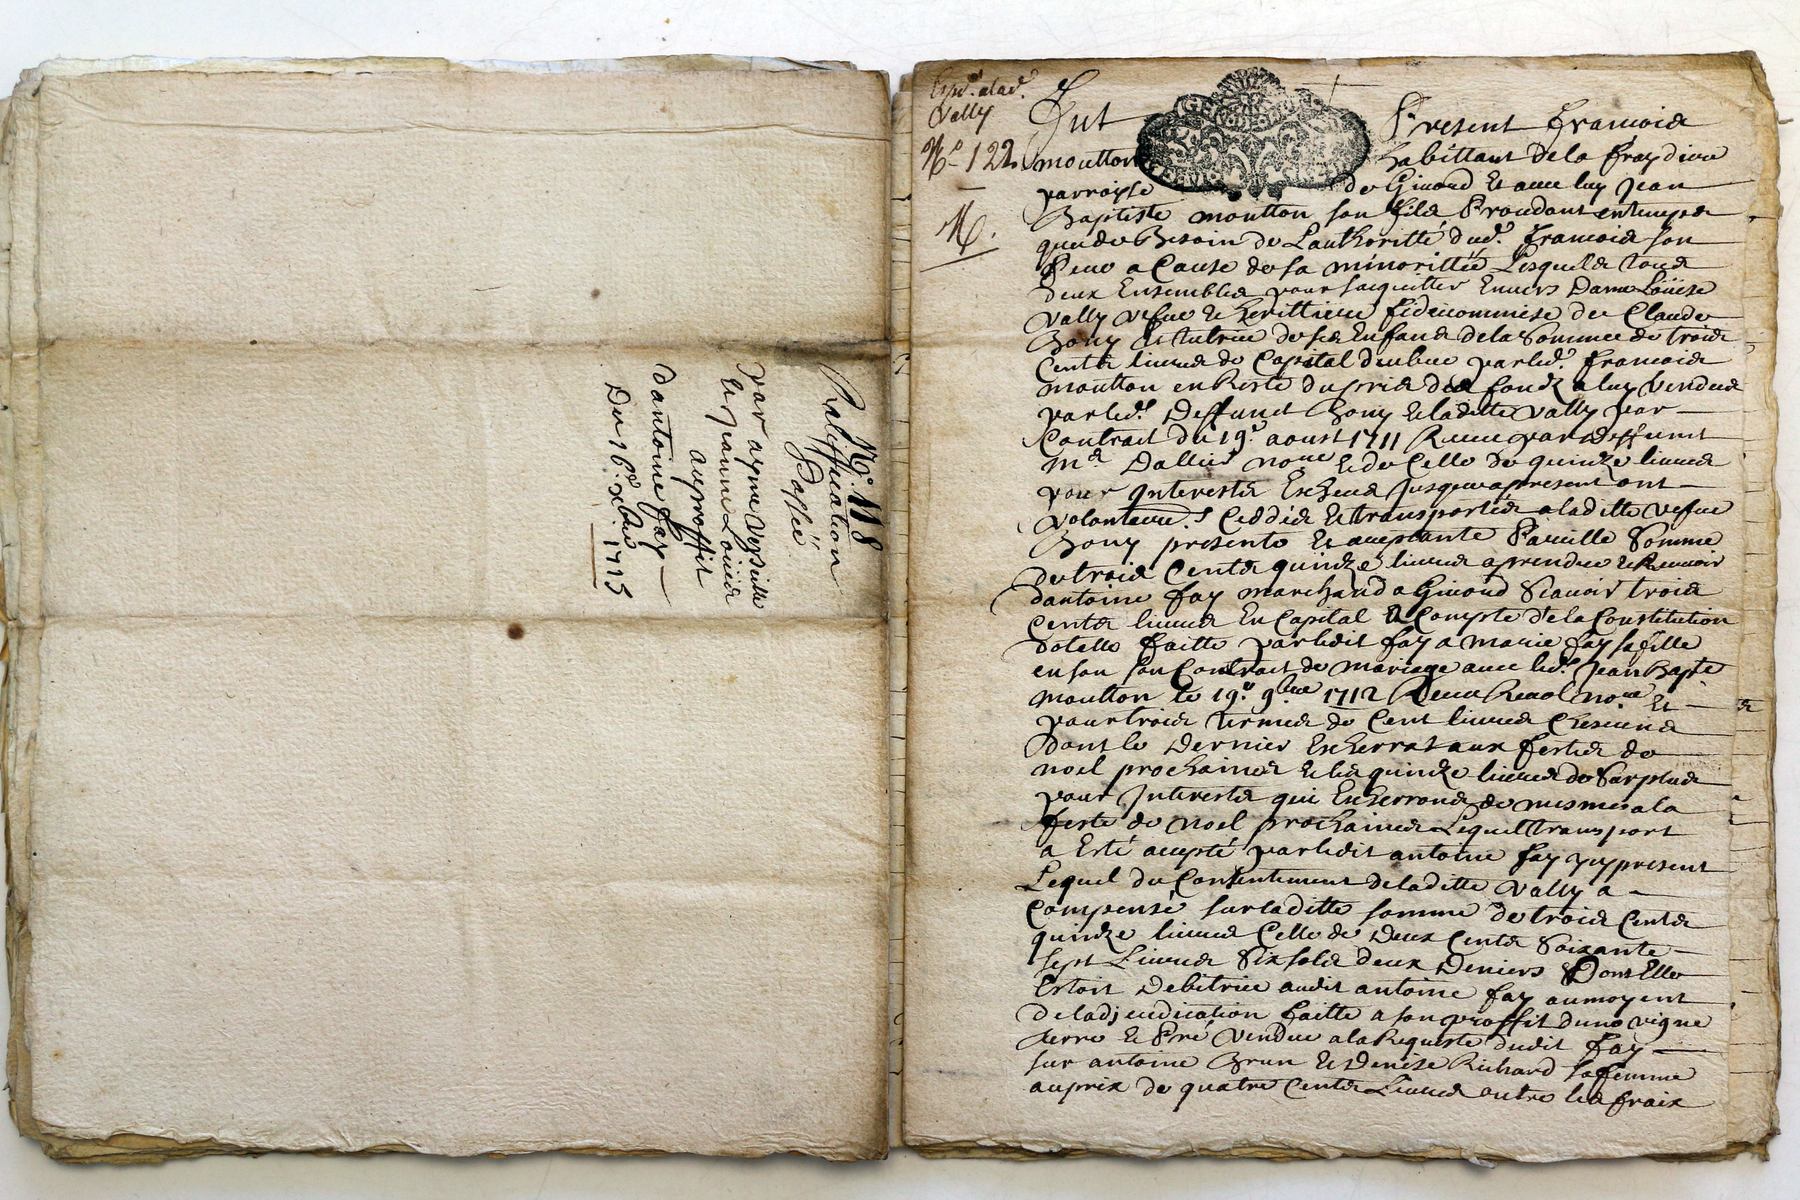 N.° 118
Ratiffication
Passée
par ayme Versille
et Jeanne Loüise
au proffit
dantoine fay
Du 16.e xbre 1715
Exp.é a lad.e
Vally
N.° 122
Fut Present francois
moutton habittant de la fray diere
parroisse de Givord et avec luy Jean
Baptiste moutton son fils
que de Besoin de Lauthoritté dud. francois son
Pere a Cause de sa minorittée Lesquels tous
deux Ensembles pour sacquitter Envers Dame Loüise
vally vefve et herittiere fideicommise de Claude
Bony et tutrice de ses Enfans de la Somme de trois
Cents livres de Capital deube par led. francois
moutton en Reste du pris des fondz a luy vendus
par led. Deffunct Bony et laditte vally par
Contract du 19.e aoust 1711 Receu par deffunct
M.e Dallier no.re et de Celle de quinze livres
pour Interests Escheus Jusques a present ont
volontairem.t Ceddés et transportés a laditte vefve
Bony presente et acceptante Pareille Somme
de trois Cents quinze livres a prendre et Recevoir
dantoine fay marchand a Givord Scavoir trois
Cents livres En Capital a Compte de la Constitution
dotalle faitte par ledit fay a marie fay sa fille
en son Contract de mariage avec led. Jean Bapte
moutton le 19.e 9bre 1712 Receu no.re Et
pour trois termes de Cent livres Chascuns
dont le Dernier Escherrat aux festes de
noel prochaines et les quinze livres de Surplus
pour Interests qui Escherrons de mesmes a la
feste de noel prochaines Lequel transport
a Esté accepté par ledit antoine fay icy present
Lequel du Consentement de laditte vally a
Compensé sur laditte somme de trois Cents
quinze livres Celle de Deux Cents Soixante
sept Livres Six sols deux Deniers Dont Elle
Estoit Debitrice audit antoine fay au moyent
de ladjeudication faitte a son proffit duno vigne
terre et Pré vendue a la Requeste dudit fay
sur antoine Brun et Denise Richard sa femme
au prix de quatre Cents Livres outre les fraix